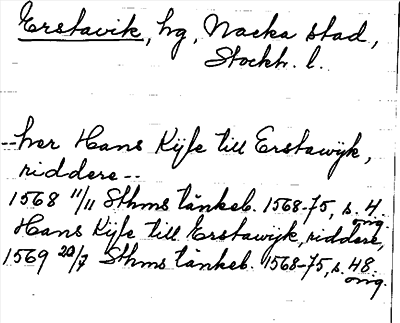 Erstavik, hg, Nacka stad,
Stockh. l.
--her Hans Kijle till Erstawijk,
riddere--
1568 11/11 Sthms tänkeb. 1568-75, s. 4.
orig.
Hans Kijle till Erstawijk, riddere,
1569 20/7 Sthms tänkeb. 1568-75, s. 48.
orig.